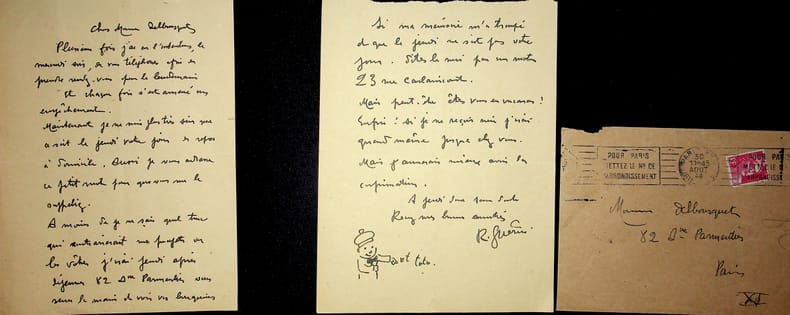 Cher Monsieur Delbousquet
Plusieurs fois j'ai eu l'intention, le
mercredi soir, de vous téléphoner afin de
prendre rendez-vous pour le lendemain
Et chaque fois s'est amené un
empêchement.
Maintenant je ne suis plus très sûr que
ce soit le jeudi votre jour de repos
à domicile. Aussi je vous adresse
ce petit mot pour que vous me le
rappeliez.
A moins de je ne sais quel truc
qui contrarierait mes projets ou
les vôtres j'irai jeudi après
déjeuner 82 Ave Parmentier vous
serrer la main et voir vos bouquins
Si ma mémoire m'a trompé
et que le jeudi ne soit pas votre
jour. Dites le moi par un mot
23 rue Caulaincourt.
Mais peut-être êtes vous en vacances!
Enfin: si je ne reçois rien j'irai
quand même jusque chez vous.
Mais j'aimerais mieux avoir la
confirmation.
A jeudi donc sans doute
Recevez mes bonnes amitiés
R. Guérin
et toto.
POUR PARIS
METTEZ LE No DE
L'ARRONDISSEMENT
17H45
30
AOUT
POUR PARIS
Monsieur Delbousquet
82 Ave Parmentier
Paris
XI